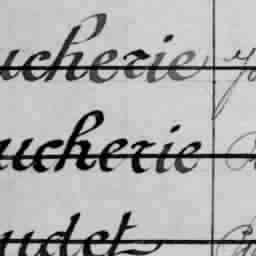 ucherie
ucherie
udet